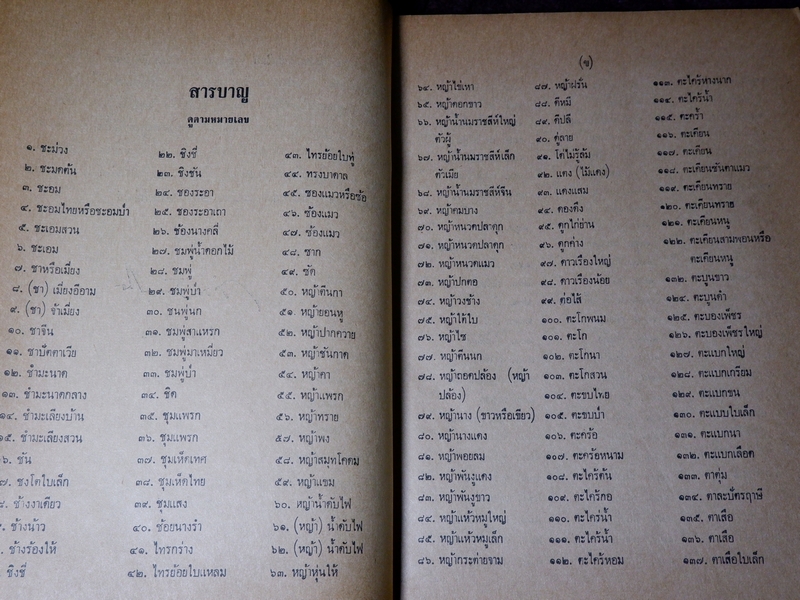 สารบาญ
ดูตามหมายเลข
๑. ชะม่วง
๒. ชะมดต้น
๓. ชะอม
๔. ชะอมไทยหรือชะอมป่า
๕. ชะเอมสวน
๖. ชะเอม
๗. ชาหรือเมี่ยง
๘. (ชา) เมี่ยงอีอาม
๙. (ชา) จ้าเมี่ยง
๑๐. ชาจีน
๑๑. ชาบัดตาเวีย
๑๒. ช้ามะนาด
๑๓. ช้ามะนาดกลาง
๑๔. ชำมะเลียงบ้าน
๑๕. ชำมะเลียงสวน
๖. ชัน
๗. ชงโคใบเล็ก
๘. ช้างงาเดียว
ช้างน้าว
ช้างร้องไห้
ชิงชี่
๒๒. ชิงชี่
๒๓. ชิงชัน
๒๔. ชองระอา
๒๕. ชองระอาเถา
๒๖. ช้องนางคลี่
๒๗. ชมพู่น้ำดอกไม้
๒๘. ชมพู่
๒๙. ชมพู่ป่า
๓๐. ชนพู่นก
๓๑. ชมพู่สาแหรก
๓๒. ชมพู่มาเหมี่ยว
๓๓. ชมพู่ป่า
๓๔. ชิด
๓๕. ชุมแพรก
๓๖. ชุมแพรก
๓๗. ชุมเห็ดเทศ
๓๘. ชุมเห็ดไทย
๓๙. ชุมแสง
๔๐. ช้อยนางรำ
๔๑. ไทรกร่าง
๔๒. ไทรย้อยใบแหลม
๔๓. ไทรย้อยใบทู่
๔๔. ทรงบาดาล
๔๕. ซองแมวหรือช้อ
๔๖. ช้องแมว
๔๗. ช้องแมว
๔๘. ซาก
๔๙. ซัด
๕๐. หญ้าตีนกา
๕๑. หญ้ายอนหู
๕๒. หญ้าปากควาย
๕๓. หญ้าชันกาด
๕๔. หญ้าคา
๕๕. หญ้าแพรก
๕๖. หญ้าทราย
๕๗. หญ้าพง
๕๘. หญ้าสมุทโคดม
๕๙. หญ้าแขม
๖๐. หญ้าน้ำดับไฟ
๖๑. (หญ้า) น้ำดับไฟ
๖๒. (หญ้า) น้ำดับไฟ
๖๓. หญ้าหุ่นไห้
(ข)
๖๔. หญ้าไข่เหา
๖๕. หญ้าดอกขาว
๖๖. หญ้าน้ำนมราชสีห์ใหญ่
ตัวผู้
๖๗. หญ้าน้ำนมราชสีห์เล็ก
ตัวเมีย
๖๘. หญ้าน้ำนมราชสีห์จีน
๖๙. หญ้าคมบาง
๗๐. หญ้าหนวดปลาดุก
๗๑. หญ้าหนวดปลาดุก
๗๒. หญ้าหนวดแมว
๗๓. หญ้าปกตอ
๗๔. หญ้างวงช้าง
๗๕. หญ้าใต้ใบ
๗๖. หญ้าไซ
๗๗. หญ้าตีนนก
๗๘. หญ้าถอดปล้อง (หญ้า
ปล้อง)
๗๙. หญ้านาง (ขาวหรือเขียว)
๘๐. หญ้านางแดง
๘๑. หญ้าพอยลม
๘๒. หญ้าพันงูแดง
๘๓. หญ้าพันงูขาว
๘๔. หญ้าแห้วหมูใหญ่
๘๕. หญ้าแห้วหมูเล็ก
๘๖. หญ้ากระต่ายจาม
๘๗. หญ้าฝรั่น
๘๘. ดีหมี
๘๙. ดีปลี
๙๐. ดู่ลาย
๙๑. โด่ไม่รู้ล้ม
๙๒. แดง (ไม้แดง)
๙๓. แดงแสม
๙๔. ดองดึง
๙๕. ดูกไก่ย่าน
๙๖. ดูกค่าง
๙๗. ดาวเรืองใหญ่
๙๘. ดาวเรืองน้อย
๙๙. ต่อไส้
๑๐๐. ตะโกพนม
๑๐๑. ตะโก
๑๐๒. ตะโกนา
๑๐๓. ตะโกสวน
๑๐๔. ตะขบไทย
๑๐๕. ตะขบป่า
๑๐๖. ตะคร้อ
๑๐๗. ตะคร้อหนาม
๑๐๘. ตะไคร้ต้น
๑๐๙. ตะไคร้กอ
๑๑๐. ตะไคร่น้ำ
๑๑๑. ตะไคร้น้ำ
๑๑๒. ตะไคร้หอม
๑๑๓. ตะไคร้หางนาก
๑๑๔. ตะไคร้น้ำ
๑๑๕. ตะคร้ำ
๑๑๖. ตะเคียน
๑๑๗. ตะเคียน
๑๑๘. ตะเคียนชันตาแมว
๑๑๙. ตะเคียนทราย
๑๒๐. ตะเคียนทราย
๑๒๑. ตะเคียนหนู
๑๒๒. ตะเคียนสามพอนหรือ
ตะเคียนหนู
๑๓๒. ตะบูนขาว
๑๒๔. ตะบูนดำ
๑๒๕. ตะบองเพ็ชร
๑๒๖. ตะบองเพ็ชรใหญ่
๑๒๗. ตะแบกใหญ่
๑๒๘. ตะแบกเกรียม
๑๒๙. ตะแบกขน
๑๓๐. ตะแบบใบเล็ก
๑๓๑. ตะแบกนา
๑๓๒. ตะแบกเลือด
๑๓๓. ตาตุ่ม
๑๓๔. ตาละปัตรฤาษี
๑๓๕. ตาเสือ
๑๓๖. ตาเสือ
๑๓๗. ตาเสือใบเล็ก